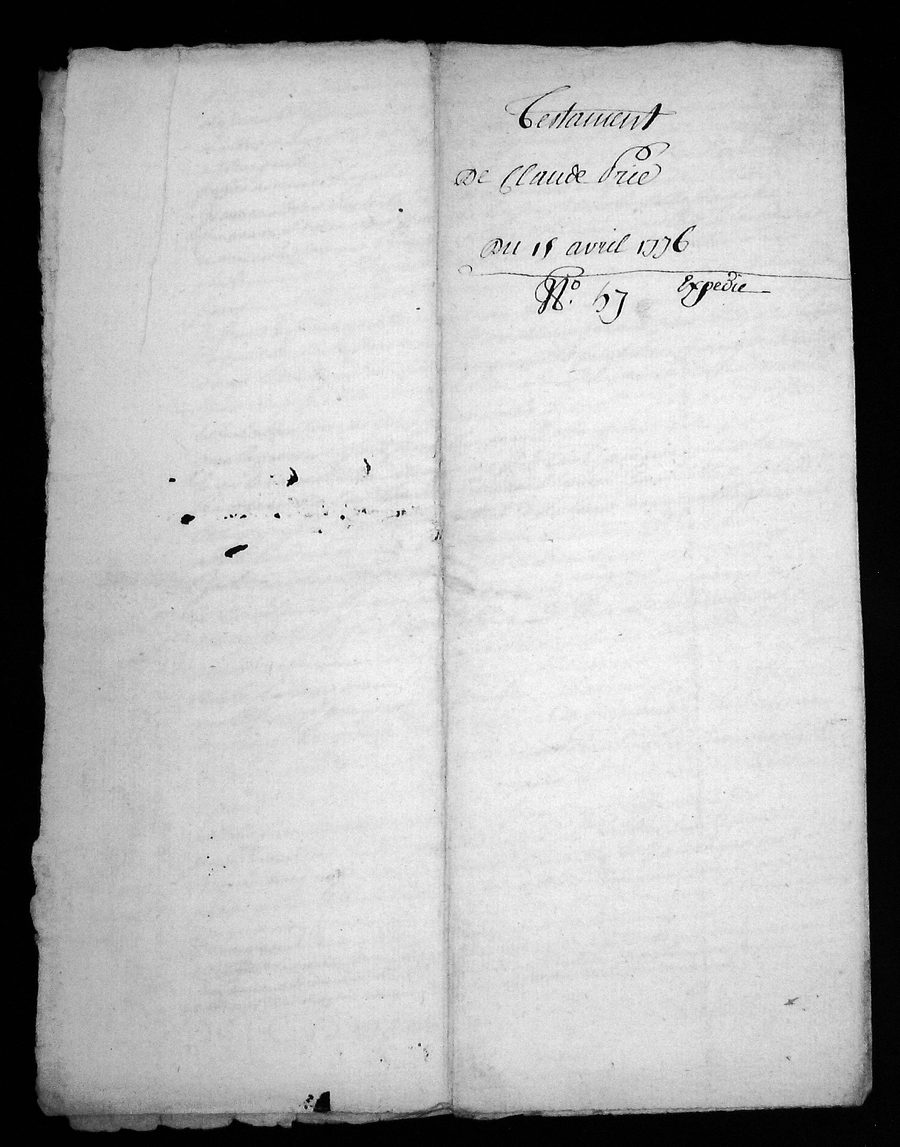 Testament
De Claude Prie
Du 15 avril 1776
N.º 67 Expedie